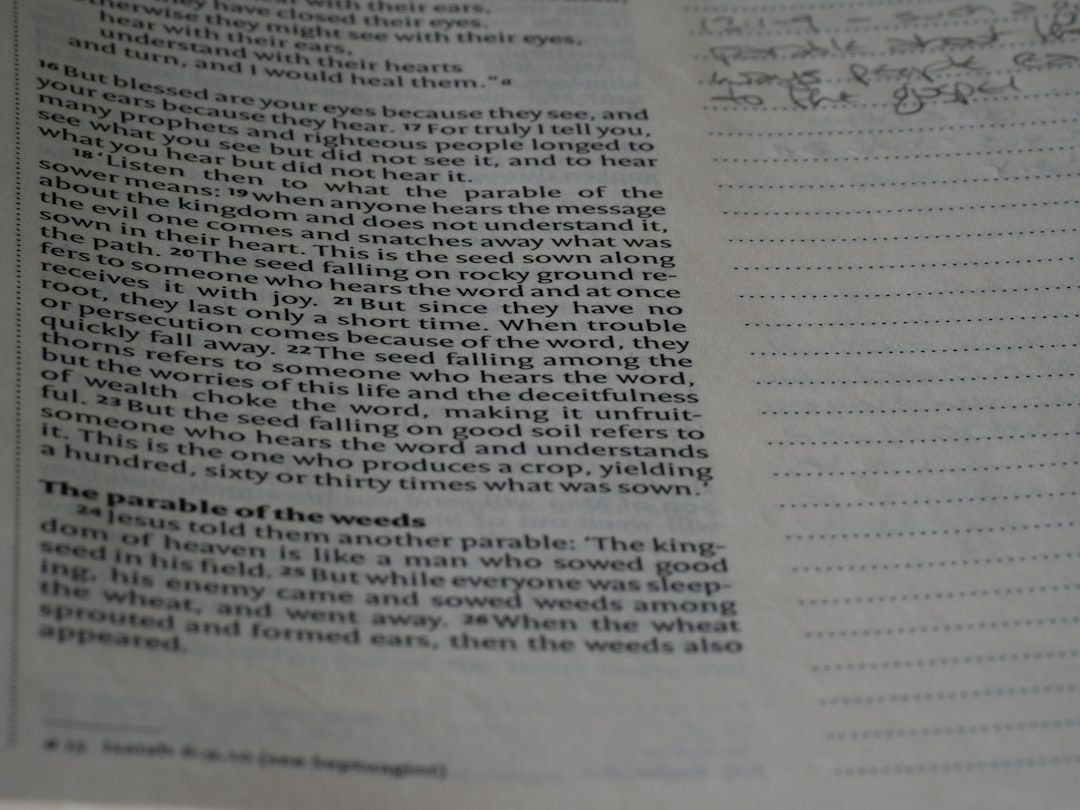 with their ears,
they have closed their eyes.
Otherwise they might see with their eyes,
hear with their ears,
understand with their hearts
and turn, and I would heal them.”a
16 But blessed are your eyes because they see, and
your ears because they hear. 17 For truly I tell you,
many prophets and righteous people longed to
see what you see but did not see it, and to hear
what you hear but did not hear it.
18 ‘Listen then to what the parable of the
sower means: 19 when anyone hears the message
about the kingdom and does not understand it,
the evil one comes and snatches away what was
sown in their heart. This is the seed sown along
the path. 20 The seed falling on rocky ground re-
fers to someone who hears the word and at once
receives it with joy. 21 But since they have no
root, they last only a short time. When trouble
or persecution comes because of the word, they
quickly fall away. 22 The seed falling among the
thorns refers to someone who hears the word,
but the worries of this life and the deceitfulness
of wealth choke the word, making it unfruit-
ful. 23 But the seed falling on good soil refers to
someone who hears the word and understands
it. This is the one who produces a crop, yielding
a hundred, sixty or thirty times what was sown.’
The parable of the weeds
24 Jesus told them another parable: ‘The king-
dom of heaven is like a man who sowed good
seed in his field. 25 But while everyone was sleep-
ing, his enemy came and sowed weeds among
the wheat, and went away. 26 When the wheat
sprouted and formed ears, then the weeds also
appeared.
Isaiah 6:9,10 (see Septuagint)
parable about
ways people
to the gospel